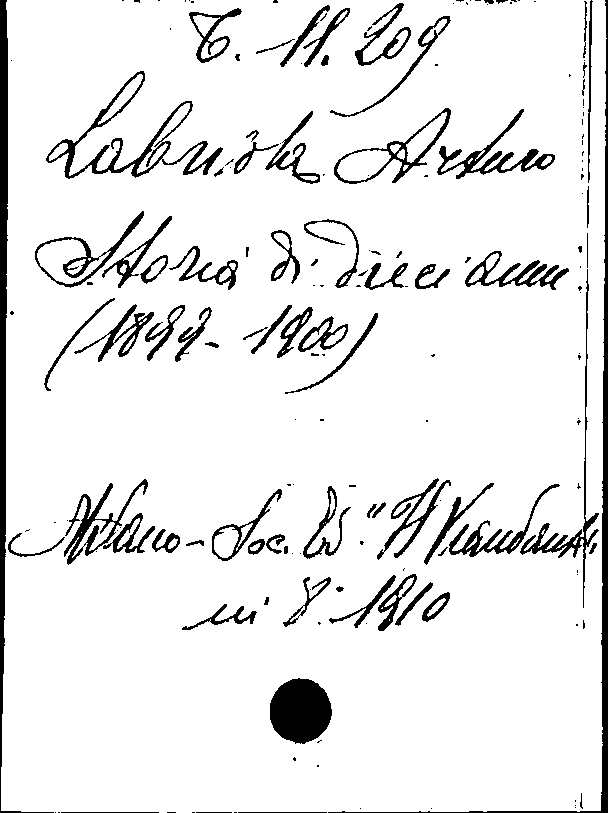 C. 11. 209
Labriola Arturo
Storia di dieci anni
(1899-1900)
Milano - Soc. Ed. "Il Viandante"
in 8.° 1910